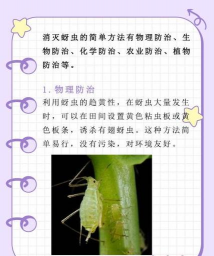 消灭蚜虫的简单方法有物理防治、生
物防治、化学防治、农业防治、植物
防治等。
1. 物理防治
利用蚜虫的趋黄性，在蚜虫大量发生
时，可以在田间设置黄色粘虫板或黄
色板条，诱杀有翅蚜虫。这种方法简
单易行，没有污染，对环境友好。